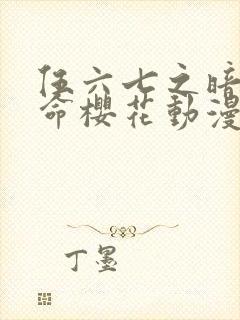 伍六七之暗
命櫻花動漫
丁墨